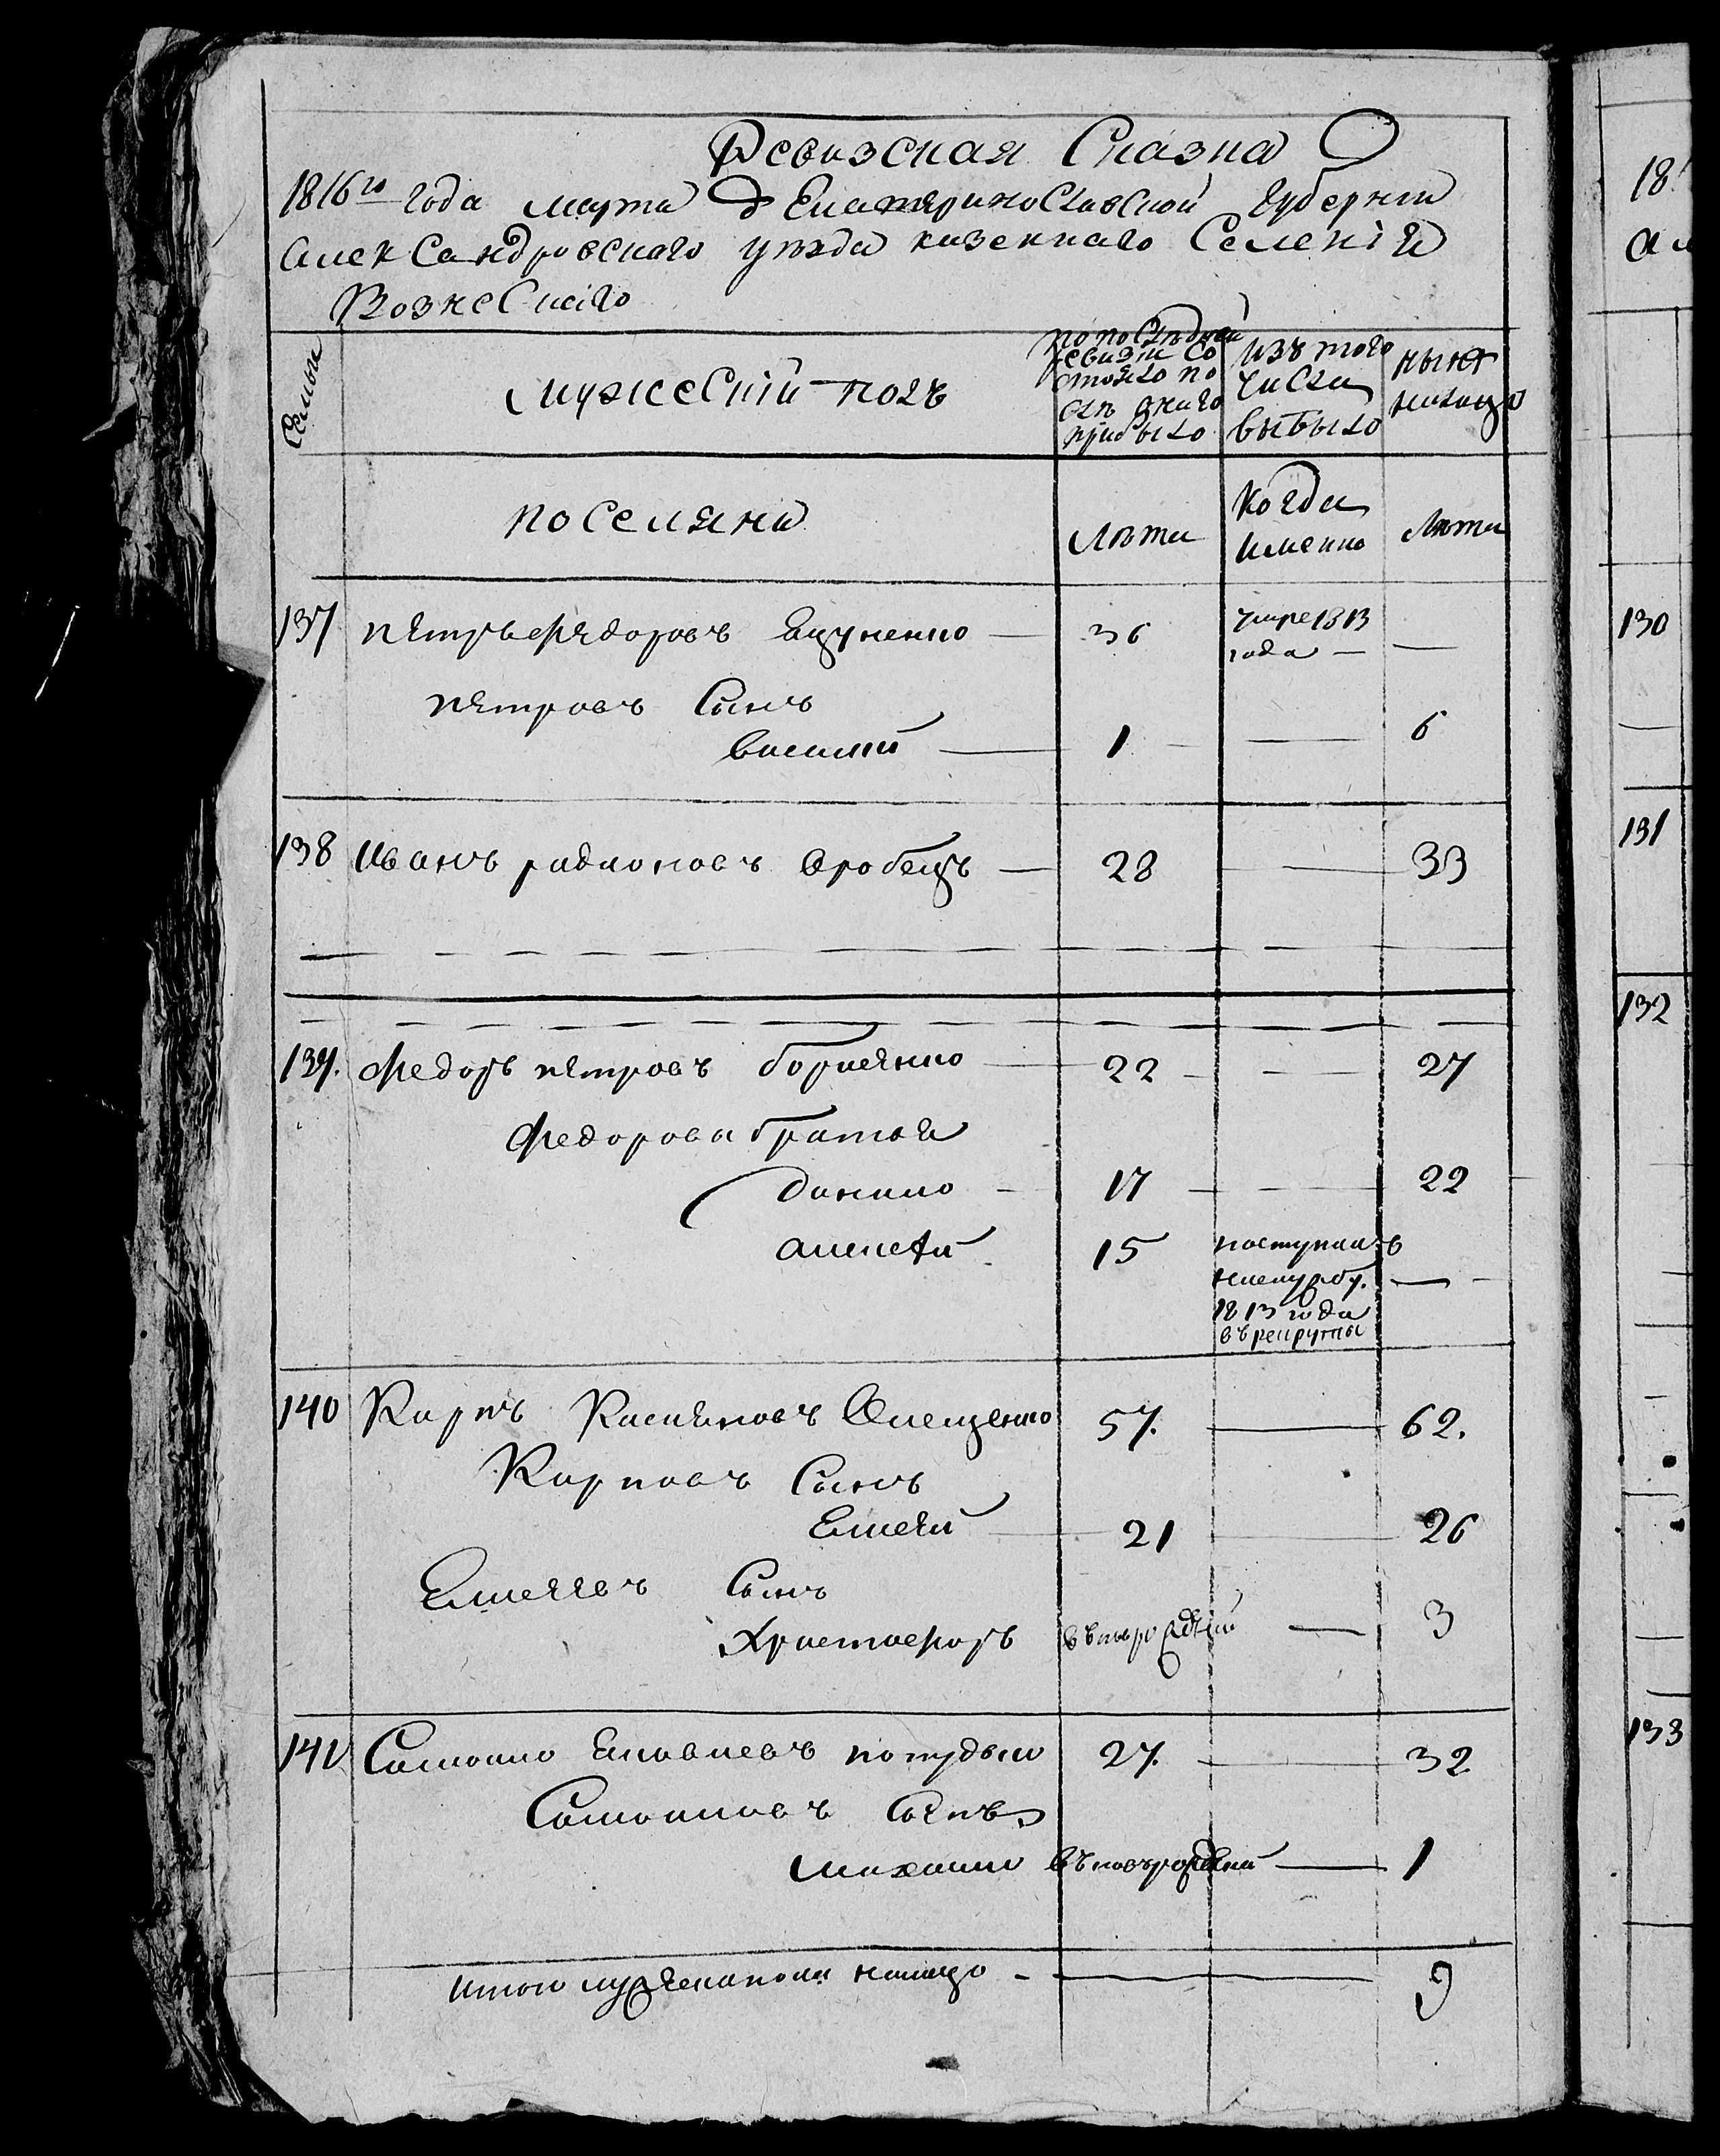 Ревизская Сказка
1816го года марта д Екатяринославской губернии
Александровскаго уезда казеннаго Селения
Вознесскаго
Семьи
мужеский полъ
по последней ревизи состояло последнаго прибыло
изъ того числа выбыло
ныне налицо
поселяня
Лета
Когда именно
Лета
137 пятръ фядоровъ — 36 умре 1813 года — —
пятровъ Сынъ
василий — 1 — 6
138 Иванъ радионовъ Вробецъ — 28 — 33
139. федоръ пятровъ борисянко — 22 — 27
федорова братья
данило — 17 — 22
алексей 15 поступилъ в 1813 года въ рекруты —
140 Карпъ Касияновъ Онещенко 57. — 62.
Карповъ Сынъ
Елисей — 21 — 26
Елисеявъ Сынъ
Христофоръ въновъ рожденый — 3
141 Самоило Яковлевъ 27. — 32
Самоиловъ Сынъ
михаило въновърожденый — 1
итого мужеска пола налицо — 9
18
130
131
132
133